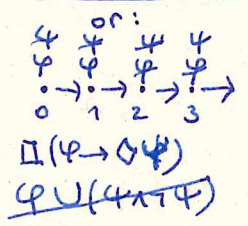 or:
ψ ψ ψ ψ
φ φ φ φ
• → • → • → • →
0 1 2 3
□(φ→◇ψ)
φ U (ψ∧¬ψ)